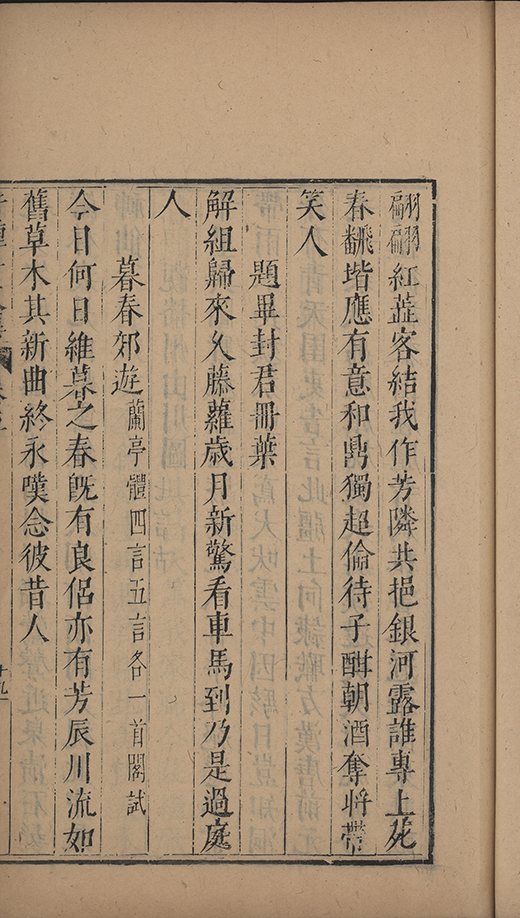 翩翩紅蕋客結我作芳隣共挹銀河露誰專上苑
春飜堦應有意和鼎獨超倫待子酣朝酒奪將帶
笑人
題畢封君冊葉
解組歸來久藤蘿歲月新驚看車馬到乃是過庭
人
暮春郊遊蘭亭體四言五言各一首閣試
今日何日維暮之春旣有良侶亦有芳辰川流如
舊草木其新曲終永嘆念彼昔人
十九